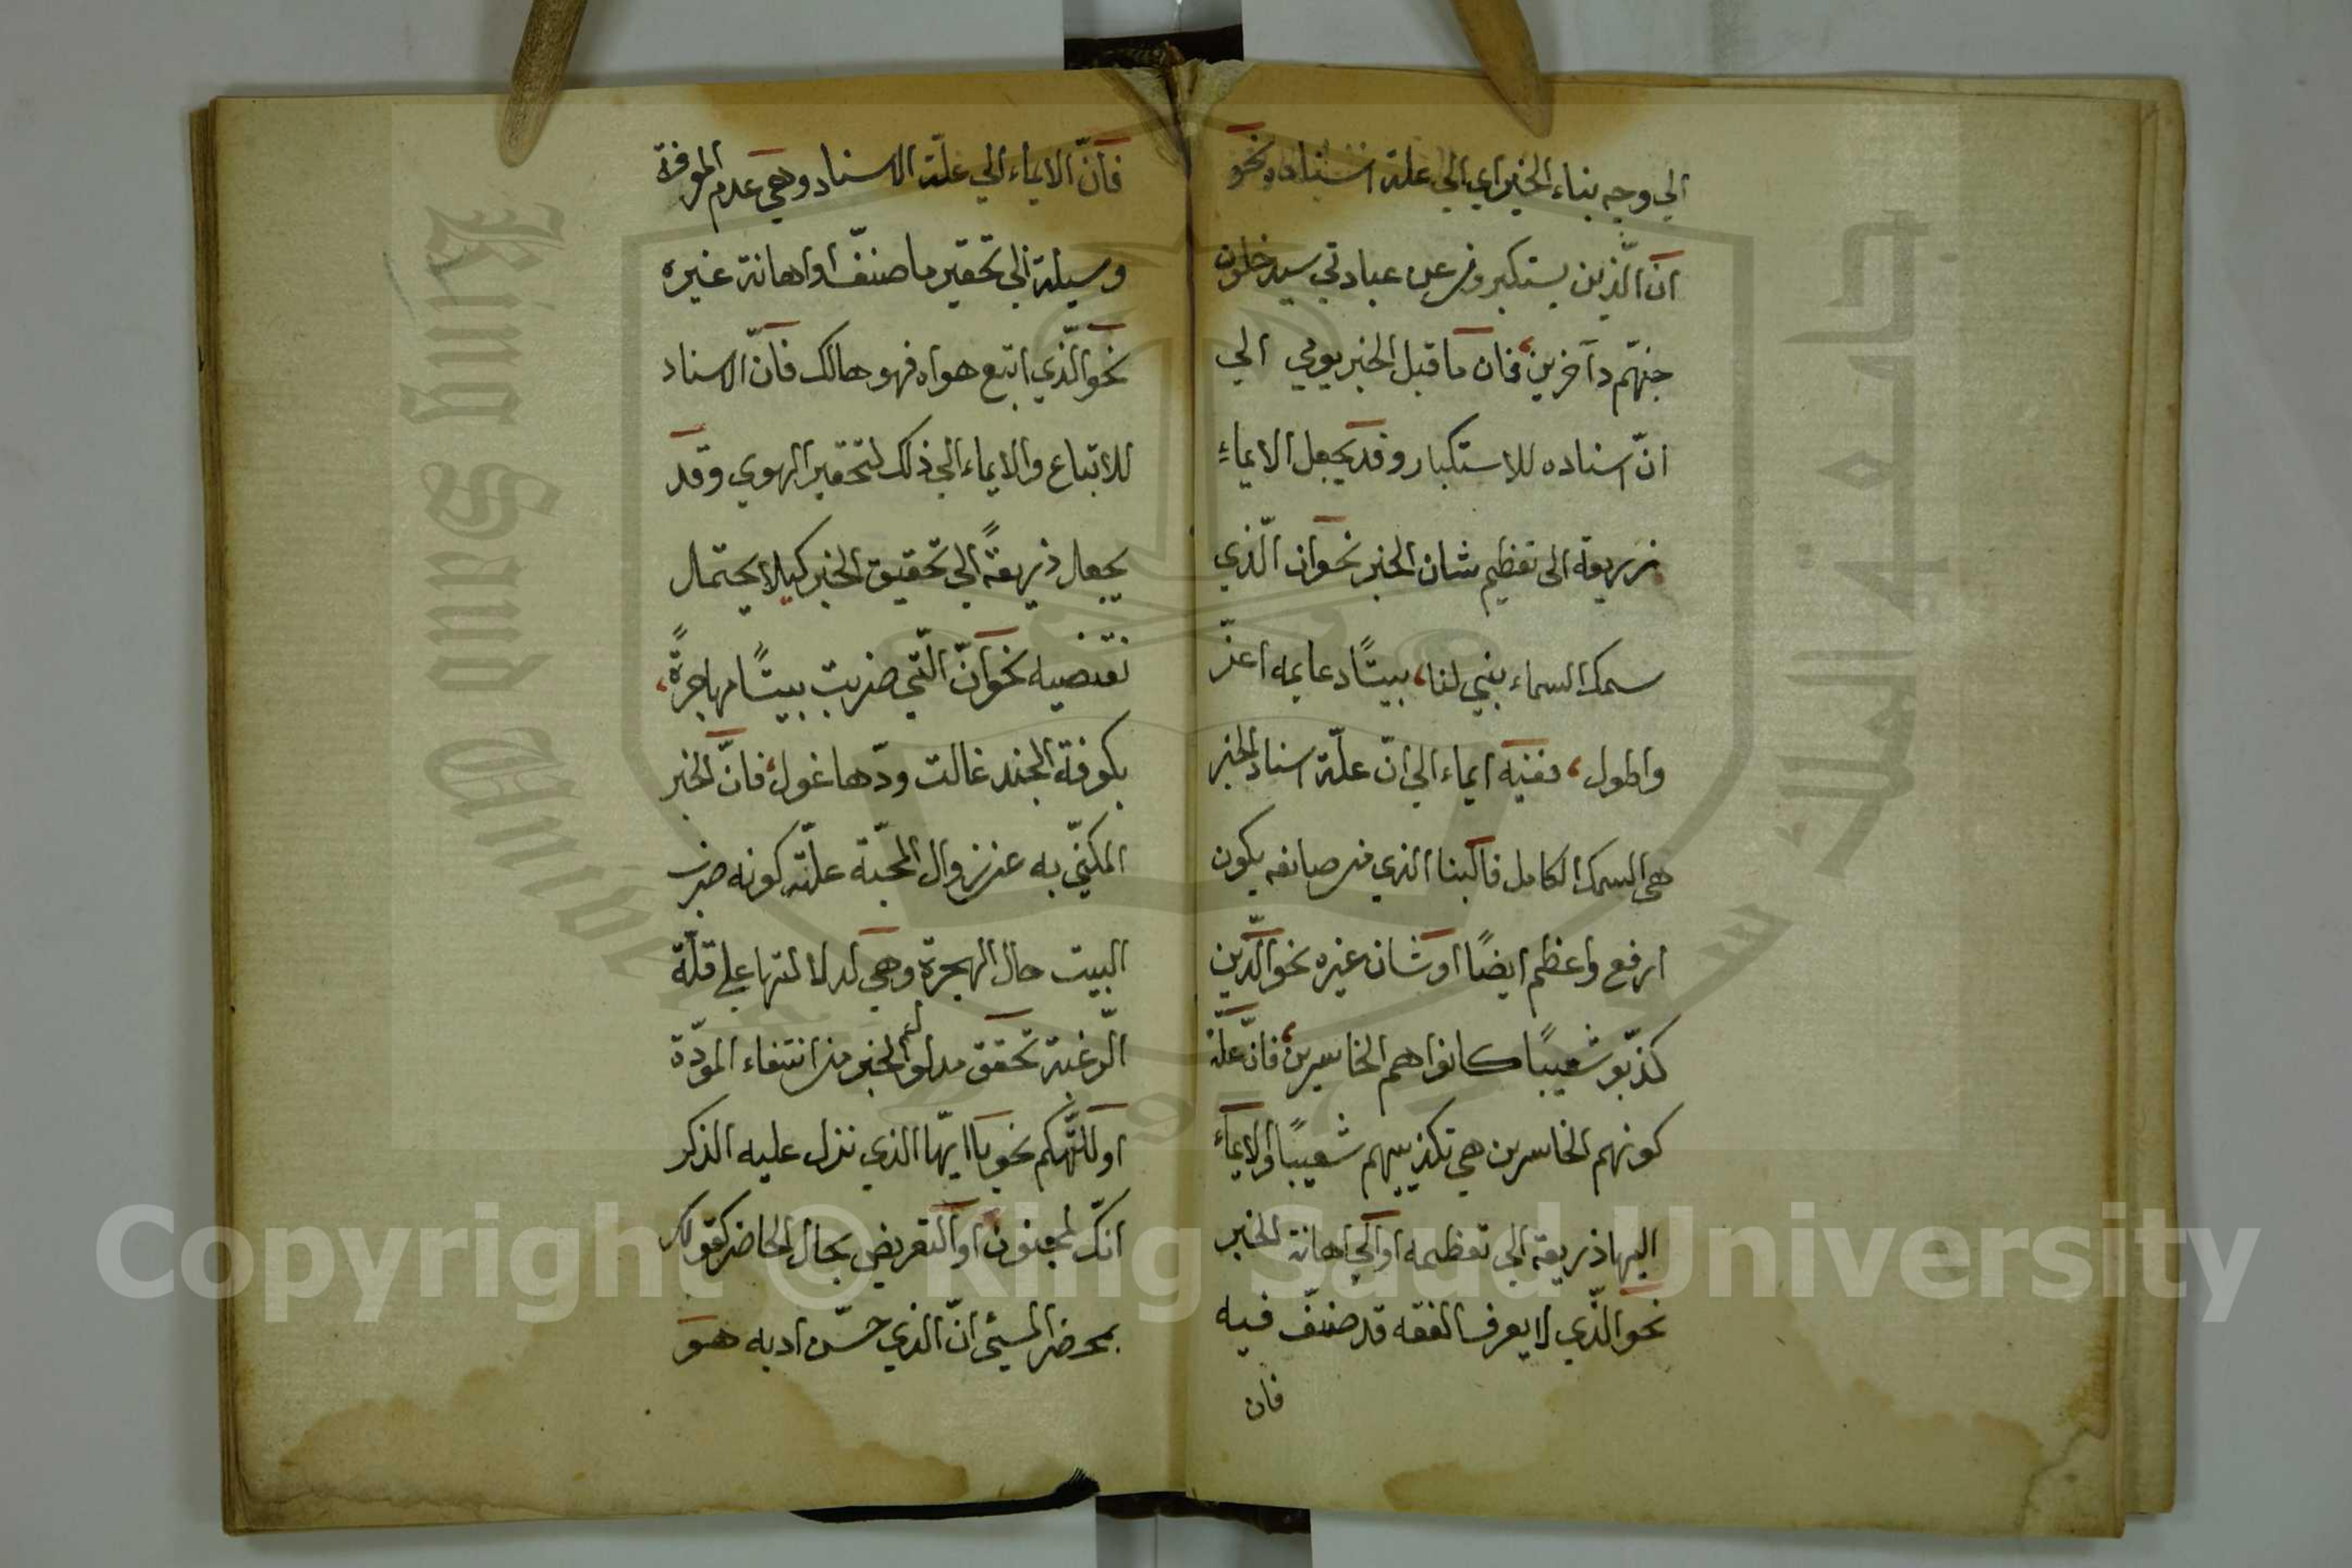 الي وجه بناء الخبر اي الي علة اسناده نحو
انّ الّذين يستكبرون عن عبادتي سيدخلون
جهنّم دآخرين، فان ما قبل الخبر يومي الي
انّ اسناده للاستكبار وقد يجعل الايماء
ذريعة الى تعظيم شان الخبر نحو ان الّذي
سمك السماء بني لنا، بيتًا دعايمه اعزّ
واطول، ففيه ايماء الي انّ علّة اسناد الخبر
هي السمك الكامل فالبنا الذي من صانعه يكون
ارفع واعظم ايضًا او شان غيره نحو الّذين
كذّبو شعيبًا كانوا هم الخاسرين، فانّ علّة
كونهم الخاسرين هي تكذيبهم شعيبًا والايماء
اليها ذريعة الي تعظيمه او الي اهانة الخبر
نحو الّذي لا يعرف الفقه قد صنّف فيه
فان
فانّ الايماء الي علّة الاسناد وهي عدم المعرفة
وسيلة الي تحقير ما صنّف او اهانة غيره
نحو الّذي اتبع هواه فهو هالك فانّ الاسناد
للاتباع والايماء الي ذلك لتحقير الهوي وقد
يجعل ذريعةً الي تحقيق الخبر كيلا يحتمل
نقتضيه نحو انّ الّتي ضربت بيتًا مهاجرةً،
بكوفة الجند غالت ودّها غول، فانّ الخبر
المكنّي به عن زوال المحبّة علّته كونه ضرب
البيت حال الهجرة وهي لدلالتها علي قلّة
الرّغبة تحقق مدلول الخبر من انتفاء المودّة
او للتّهكم نحو يا ايّها الذي نزل عليه الذكر
انّك لمجنون او التعريض بحال الحاضر كقولك
بمحضر المسيئ انّ الذي حسّن ادبه هو
Copyright © King Saud University
King Saud University